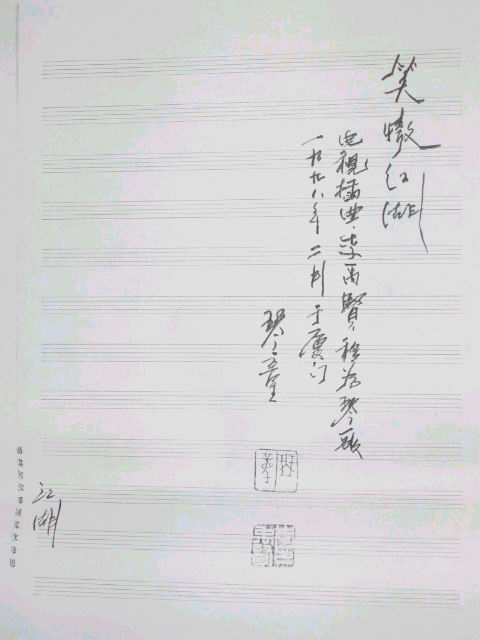 笑傲江湖
电视插曲·李禹賢移为琴歌
一九九八年二月于厦门
琴童
江湖